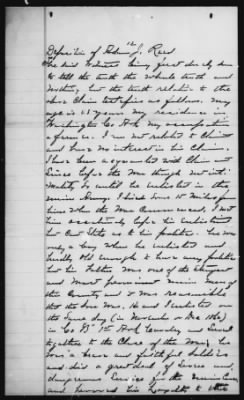 Deposition of Edwin J. Reed
The said Witness being first duly sworn
to tell the truth the whole truth and
nothing but the truth relative to the
above Claim testifies as follows. My
age is years My residence is
Washington Co Ark My occupation
a farmer. I am not related to Claimant
and have no interest in his Claim.
I have been acquainted with Claimant
since before the War though not intimately
so until he enlisted in the
Union Army. I lived some 15 miles from
him when the War Commenced, I not
him before his Enlistment
but Can't State as to his politics. he was
only a boy when he enlisted and
hardly old enough to have any politics
but his Father was one of the strongest
and most prominent Union men of
the County and it was reasonable
that the boy was. He and I enlisted on
the same day (in November or Dec 1862)
in Co 1st Ark Cavalry and Served
together to the Close of the War; he
was a brave and faithful Soldier
and did a great deal of Severe and
dangerous Service for the
and his Loyalty to the